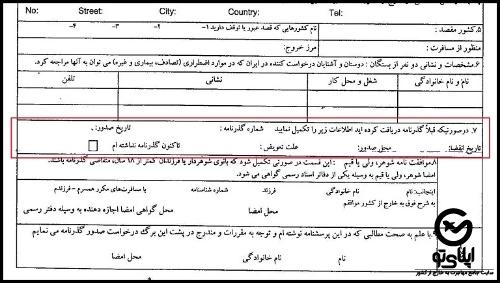 No: Street: City: Country: Tel:
۵.کشور مقصد : نام کشورهایی که قصد عبور یا توقف دارید ۱- ۲- ۳- ۴-
منظور از مسافرت : مرز خروج:
۶.مشخصات و نشانی دو نفر از بستگان : دوستان و آشنایان درخواست کننده در ایران که در موارد اضطراری (تصادف، بیماری و غیره) می توان به آنها مراجعه کرد.
نام و نام خانوادگی شغل و محل کار نشانی تلفن
۷. درصورتیکه قبلاً گذرنامه دریافت کرده اید اطلاعات زیر را تکمیل نمایید شماره گذرنامه : تاریخ صدور: .
تاریخ انقضا: محل صدور: علت تعویض: تاکنون گذرنامه نداشته ام
۸.موافقت نامه شوهر، ولی یا قیم : این قسمت در صورتی تکمیل شود که بانوی شوهردار یا فرزندان کمتر از ۱۸ سال، متقاضی گذرنامه باشند.
امضا شوهر، ولی یا قیم به وسیله یکی از دفاتر اسناد رسمی گواهی می شود.
اینجانب: نام نام خانوادگی فرزند شماره شناسنامه با مسافرت‌های مکرر همسرم - فرزندم
به شرح فوق به خارج از کشور موافقم محل امضا محل گواهی امضا اجازه دهنده به وسیله دفتر رسمی
۹.با علم به صحت مطالبی که در این پرسشنامه نوشته ام و توجه به مقررات و مندرج در پشت این برگ درخواست صدور گذرنامه می نمایم
نام نام خانوادگی محل امضا
اپلای تو
سایت جامع مهاجرت به خارج از کشور